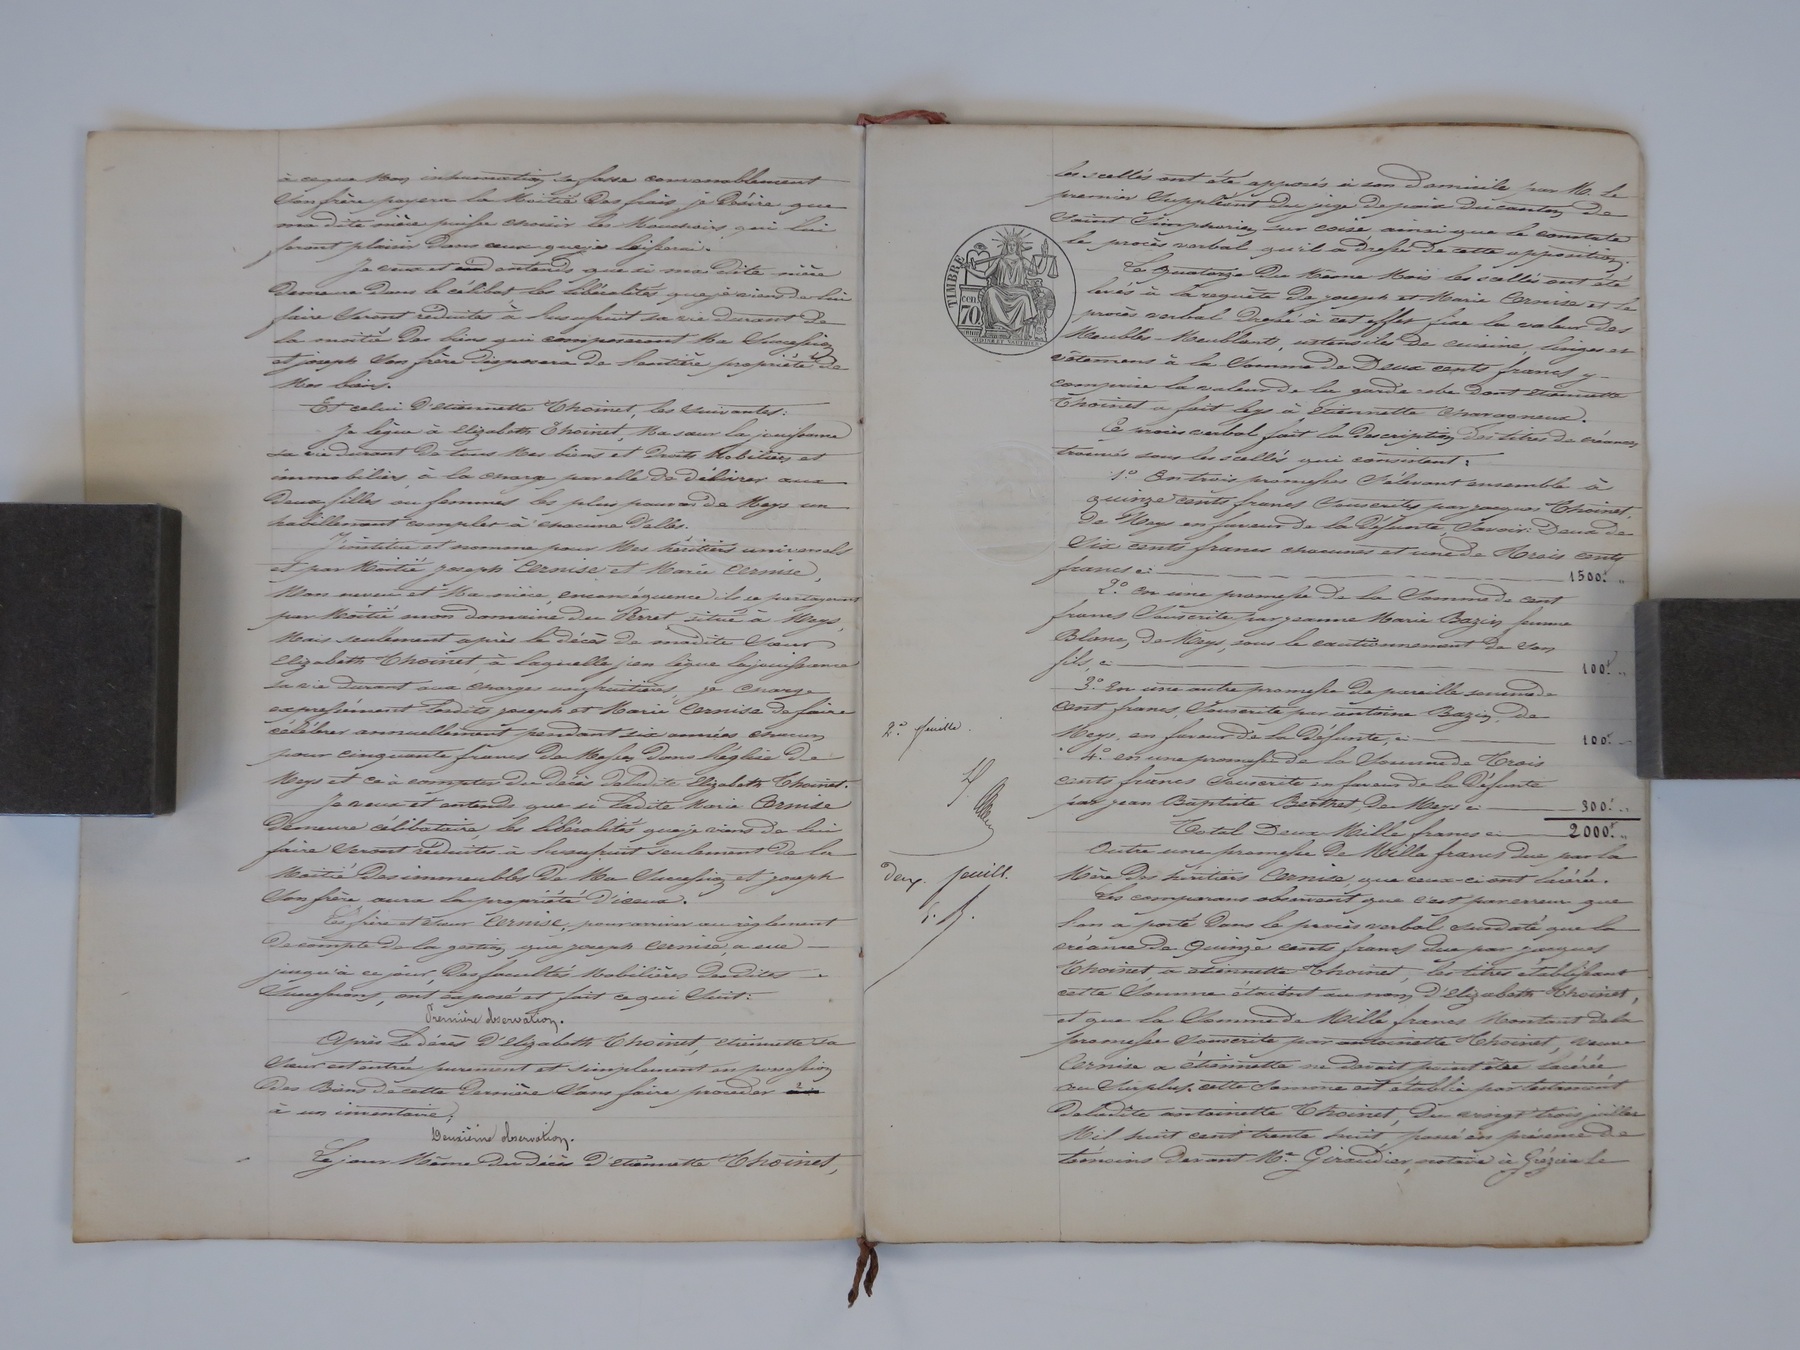 à ce que mon inhumation se fasse convenablement
son frère payera la moitié des frais, je désire que
ma dite nièce puisse choisir les mouchoirs qui lui
feront plaisir dans ceux que je laisserai.
Je veux et entends que si ma dite nièce
demeure dans le célibat les libéralités que je viens de lui
faire seront réduites à l'usufruit sa vie durant de
la moitié des biens qui composeront ma succession
et joseph son frère disposera de l'entière propriété de
mes biens.
Et celui d'etiennette Thoinet, les suivantes:
Je lègue à Elizabeth Thoinet, ma sœur la jouissance
sa vie durant de tous mes biens et droits mobiliers et
immobiliers à la charge par elle de délivrer aux
deux filles ou femmes les plus pauvres de Meys un
habillement complet à chacune d'elles.
J'institue et nomme pour mes héritiers universels
et par moitié joseph Cernise et Marie Cernise,
mon neveu et ma nièce, en conséquence ils se partageront
par moitié mon domaine du Perret situé à Meys,
mais seulement après le décès de madite sœur
Elizabeth Thoinet, à laquelle j'en lègue la jouissance
sa vie durant aux charges usufruitières, je charge
expressément lesdits joseph et Marie Cernise de faire
célébrer annuellement pendant six années chacun
pour cinquante francs de Messes dans l'église de
Meys et ce à compter du décès de ladite Elizabeth Thoinet.
Je veux et entends que si ladite Marie Cernise
demeure célibataire, les libéralités que je viens de lui
faire seront réduites à l'usufruit seulement de la
moitié des immeubles de ma succession et joseph
son frère aura la propriété d'iceux.
Les frère et sœur Cernise, pour arriver au règlement
de compte de la gestion que joseph Cernise a eue
jusqu'à ce jour des facultés mobilières desdites
successions, ont exposé et fait ce qui suit:
Première observation.
Après le décès d'Elizabeth Thoinet, etiennette sa
sœur est entrée purement et simplement en possession
des Biens de cette dernière sans faire procéder
à un inventaire.
Deuxième observation.
Le jour même du décès d'etiennette Thoinet,
les scellés ont été apposés à son domicile par M. le
premier suppléant du juge de paix du canton de
Saint Simphorien sur coise ainsi que le constate
le procès verbal qu'il a dressé de cette apposition.
TIMBRE
70
Le quatorze du même mois les scellés ont été
levés à la requête de joseph et Marie Cernise et le
procès verbal dressé à cet effet fixe la valeur des
Meubles-Meublants, ustensiles de cuisine, linges et
vêtemens à la somme de Deux cents francs y
comprise la valeur de la garde-robe dont etiennette
Thoinet a fait legs à Etiennette
Ce procès verbal fait la description des titres de créances
trouvés sous les scellés qui consistent:
1.° En trois promesses s'élevant ensemble à
quinze cents francs souscrites par jacques Thoinet
de Meys en faveur de la défunte savoir: Deux de
six cents francs chacunes et une de trois cents
francs ci 1500.f "
2.° en une promesse de la somme de cent
francs souscrite par jeanne Marie Bazin femme
Blanc, de Meys, sous le cautionnement de son
fils, ci 100.f "
3.° en une autre promesse de pareille somme de
cent francs, souscrite par antoine Bazin, de
Meys, en faveur de la défunte, ci 100.f "
4.° en une promesse de la somme de Trois
cents francs souscrite en faveur de la Défunte
par jean Baptiste Berthet, de Meys ci 300.f "
Total Deux Mille francs ci 2000.f "
2.e feuille.
deux. feuill.
Outre une promesse de Mille francs due par la
Mère des héritiers Cernise, que ceux-ci ont lacérée.
Les comparans observent que c'est par erreur que
l'on a porté dans le procès verbal susdaté que la
créance de Quinze cents francs due par jacques
Thoinet à etiennette Thoinet, les titres établissant
cette somme étaient au nom d'Elizabeth Thoinet,
et que la somme de Mille francs montant de la
promesse souscrite par antoinette Thoinet, veuve
Cernise a étiennette ne devait point être lacérée
au surplus, cette somme est établie par testament
de ladite antoinette Thoinet, du vingt trois juillet
mil huit cent trente huit, passé en présence de
témoins devant M.e Giraudier, notaire à Grézieu le